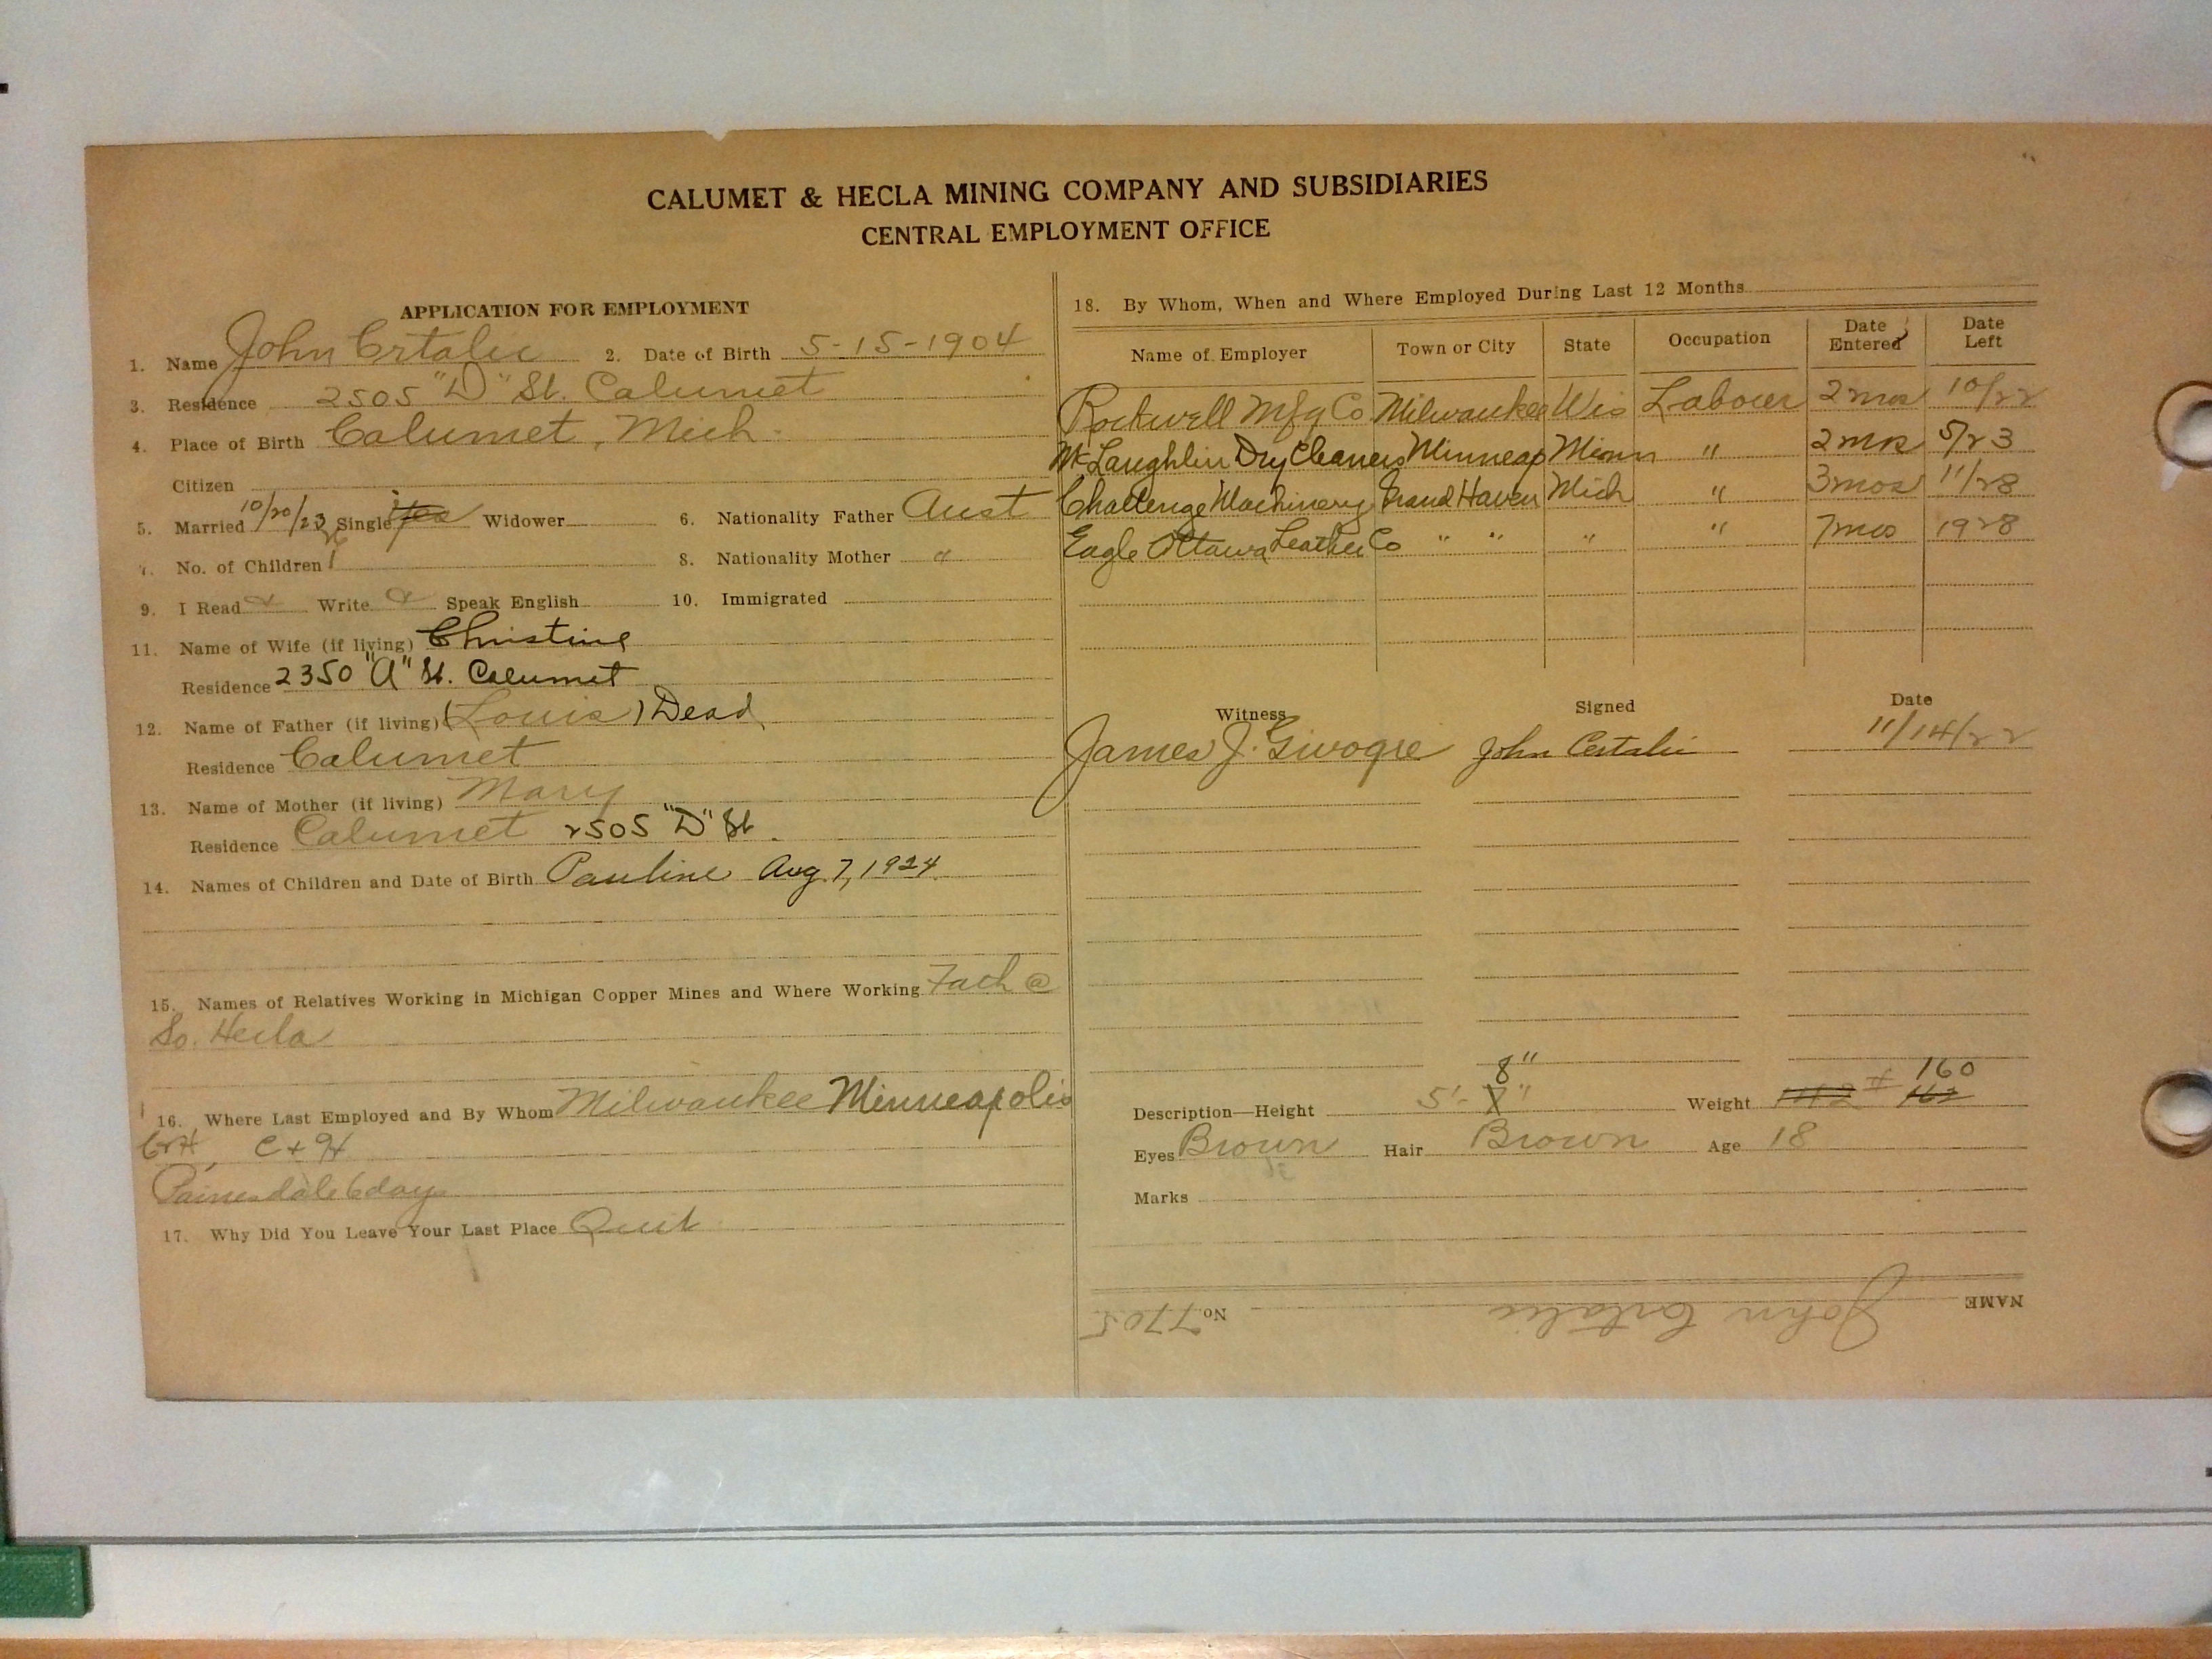 CALUMET & HECLA MINING COMPANY AND SUBSIDIARIES
CENTRAL EMPLOYMENT OFFICE
APPLICATION FOR EMPLOYMENT
1. Name John Crtalic 2. Date of Birth 5-15-1904
3. Residence 2505 "D" St. Calumet
4. Place of Birth Calumet, Mich.
Citizen
5. Married 10/20/23 Single yes Widower 6. Nationality Father Aust
7. No. of Children 1 8. Nationality Mother "
9. I Read Write Speak English 10. Immigrated
11. Name of Wife (if living) Christine
Residence 2350 "A" St. Calumet
12. Name of Father (if living) (Louis) Dead
Residence Calumet
13. Name of Mother (if living) Mary
Residence Calumet 2505 "D" St.
14. Names of Children and Date of Birth Pauline Aug. 7, 1924
15. Names of Relatives Working in Michigan Copper Mines and Where Working Fath @
So. Hecla
16. Where Last Employed and By Whom Milwaukee Minneapolis
C & H
Painesdale 6 days
17. Why Did You Leave Your Last Place Quit
18. By Whom, When and Where Employed During Last 12 Months
Name of Employer Town or City State Occupation Date Entered Date Left
Rockwell Mfg Co Milwaukee Wis Laborer 2 mos 10/22
McLaughlin Dry Cleaners Minneap Minn " 2 mos 5/23
Challenge Machinery Grand Haven Mich " 3 mos 11/28
Eagle Ottawa Leather Co " " " " 7 mos 1928
Witness Signed Date
James J. John Certalic 11/14/22
8"
160
Description—Height 5'-7" Weight 142 # 162
Eyes Brown Hair Brown Age 18
Marks
NAME John Crtalic No. 7705